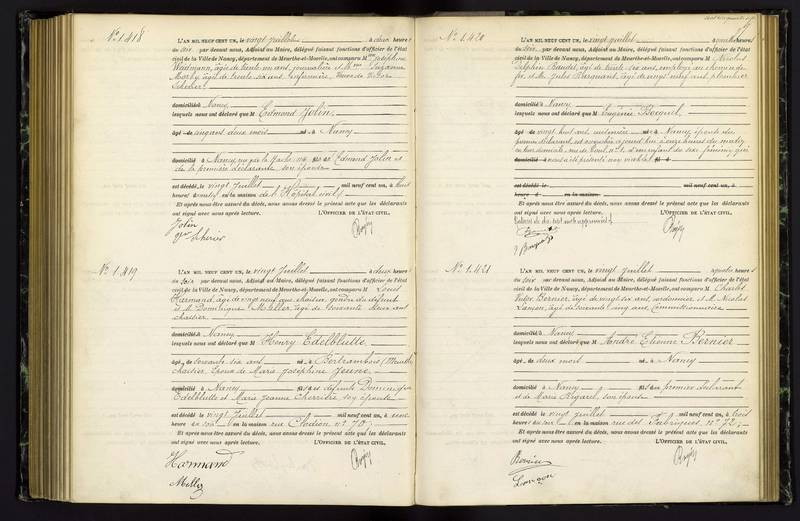 No 1.418
L'AN MIL NEUF CENT UN, le vingt juillet à deux heures
du soir par devant nous, Adjoint au Maire, délégué faisant fonctions d'officier de l'état
civil de la Ville de Nancy, département de Meurthe-et-Moselle, ont comparu M Joséphine
âgée de trente un ans, journalière et Mme Suzanne
âgée de trente six ans, infirmière, Veuve de Victor
domicilié à Nancy
lesquels nous ont déclaré que M Edmond Jolin,
âgé de cinquante deux mois né à Nancy
domicilié à Nancy, Edmond Jolin et
de la première déclarante, son épouse
est décédé, le vingt juillet mil neuf cent un, à huit
heures du matin en la maison de l'Hôpital civil
Et après nous être assuré du décès, nous avons dressé le présent acte que les déclarants
ont signé avec nous après lecture. L'OFFICIER DE L'ÉTAT CIVIL,
Jolin
No 1.419
L'AN MIL NEUF CENT UN, le vingt juillet à deux heures
du soir par devant nous, Adjoint au Maire, délégué faisant fonctions d'officier de l'état
civil de la Ville de Nancy, département de Meurthe-et-Moselle, ont comparu M Louis
Harmand, âgé de vingt neuf ans, chaisier, gendre du défunt
et M. Dominique Muller, âgé de soixante deux ans
chaisier
domicilié à Nancy
lesquels nous ont déclaré que M Henry Edelblutte
âgé de soixante six ans né à Bertrambois (Meurthe)
chaisier, époux de Marie Joséphine Jeune
domicilié à Nancy des défunts Dominique
Edelblutte et Marie Jeanne Cherrière son épouse
est décédé le vingt juillet mil neuf cent un, à onze
heures en la maison rue Clodion no 70
Et après nous être assuré du décès, nous avons dressé le présent acte que les déclarants
ont signé avec nous après lecture. L'OFFICIER DE L'ÉTAT CIVIL,
Harmand
Muller
No 1.420
L'AN MIL NEUF CENT UN, le vingt juillet à heures
du soir par devant nous, Adjoint au Maire, délégué faisant fonctions d'officier de l'état
civil de la Ville de Nancy, département de Meurthe-et-Moselle, ont comparu M Nicolas
Delphin âgé de trente six ans, employé au chemin de
fer, et M. Jules âgé de vingt neuf ans, plombier
domicilié à Nancy
lesquels nous ont déclaré que M Eugénie
âgée de vingt huit ans née à Nancy, épouse du
premier déclarant, est accouchée aujourd'hui à onze heures du matin
en leur domicile, rue d'un enfant du sexe féminin qui
domicilié à nous a été présenté non viable
est décédé le mil neuf cent un, à
heures d en la maison
Et après nous être assuré du décès, nous avons dressé le présent acte que les déclarants
ont signé avec nous après lecture. L'OFFICIER DE L'ÉTAT CIVIL,
No 1.421
L'AN MIL NEUF CENT UN, le vingt juillet à quatre heures
du soir par devant nous, Adjoint au Maire, délégué faisant fonctions d'officier de l'état
civil de la Ville de Nancy, département de Meurthe-et-Moselle, ont comparu M Charles
Victor Bernier, âgé de vingt six ans, cordonnier et M. Nicolas
âgé de soixante cinq ans, commissionnaire
domicilié à Nancy
lesquels nous ont déclaré que M André Etienne Bernier
âgé de deux mois né à Nancy
domicilié à Nancy du premier déclarant
et de Marie son épouse
est décédé le vingt juillet mil neuf cent un, à trois
heures du soir en la maison rue des Fabriques, no 72
Et après nous être assuré du décès, nous avons dressé le présent acte que les déclarants
ont signé avec nous après lecture. L'OFFICIER DE L'ÉTAT CIVIL,
Bernier